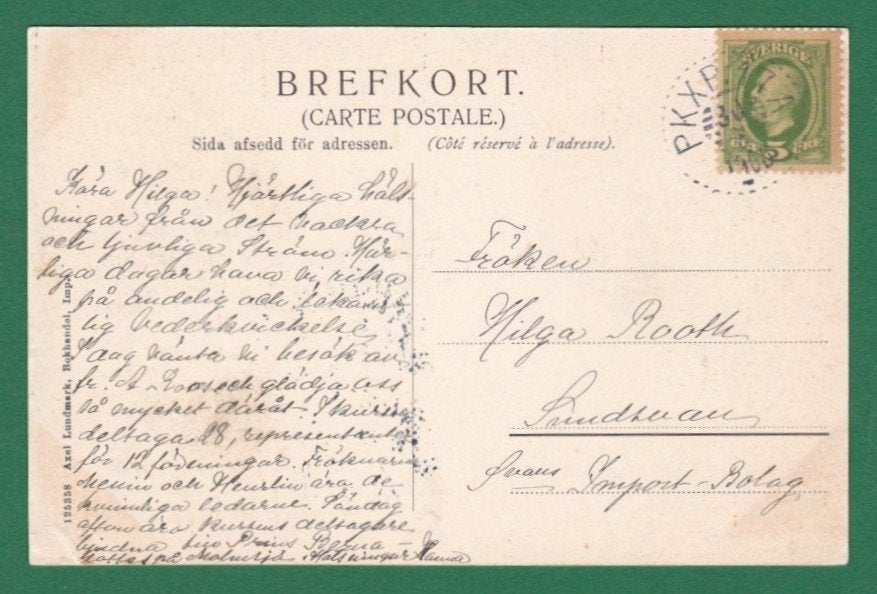 BREFKORT.
(CARTE POSTALE.)
Sida afsedd för adressen. (Côté réservé à l'adresse).
SVERIGE
5 ÖRE
PKXP
Kära Hilga! Hjärtliga häls-
ningar från det vackra
och ljuvliga Sträm. Här-
liga dagar hava vi, rika
på andelig och lekam-
lig vederkvickelse.
I dag vänta vi besök av
fr. A. Roos och glädja oss
så mycket däråt. I kursen
deltaga 28, representanter
för 12 föreningar. Fröknarna
och Henrlin äro de
kvinnliga ledarne. Söndag
afton äro kursens deltagare
bjudna till Prins Berna-
dottes på Malmsjö. Hälsningar Hanna
Fröken
Hilga Rooth
Sundsvall
Svans Import-Bolag
125358 Axel Lundmark, Bokhandel, Imp.